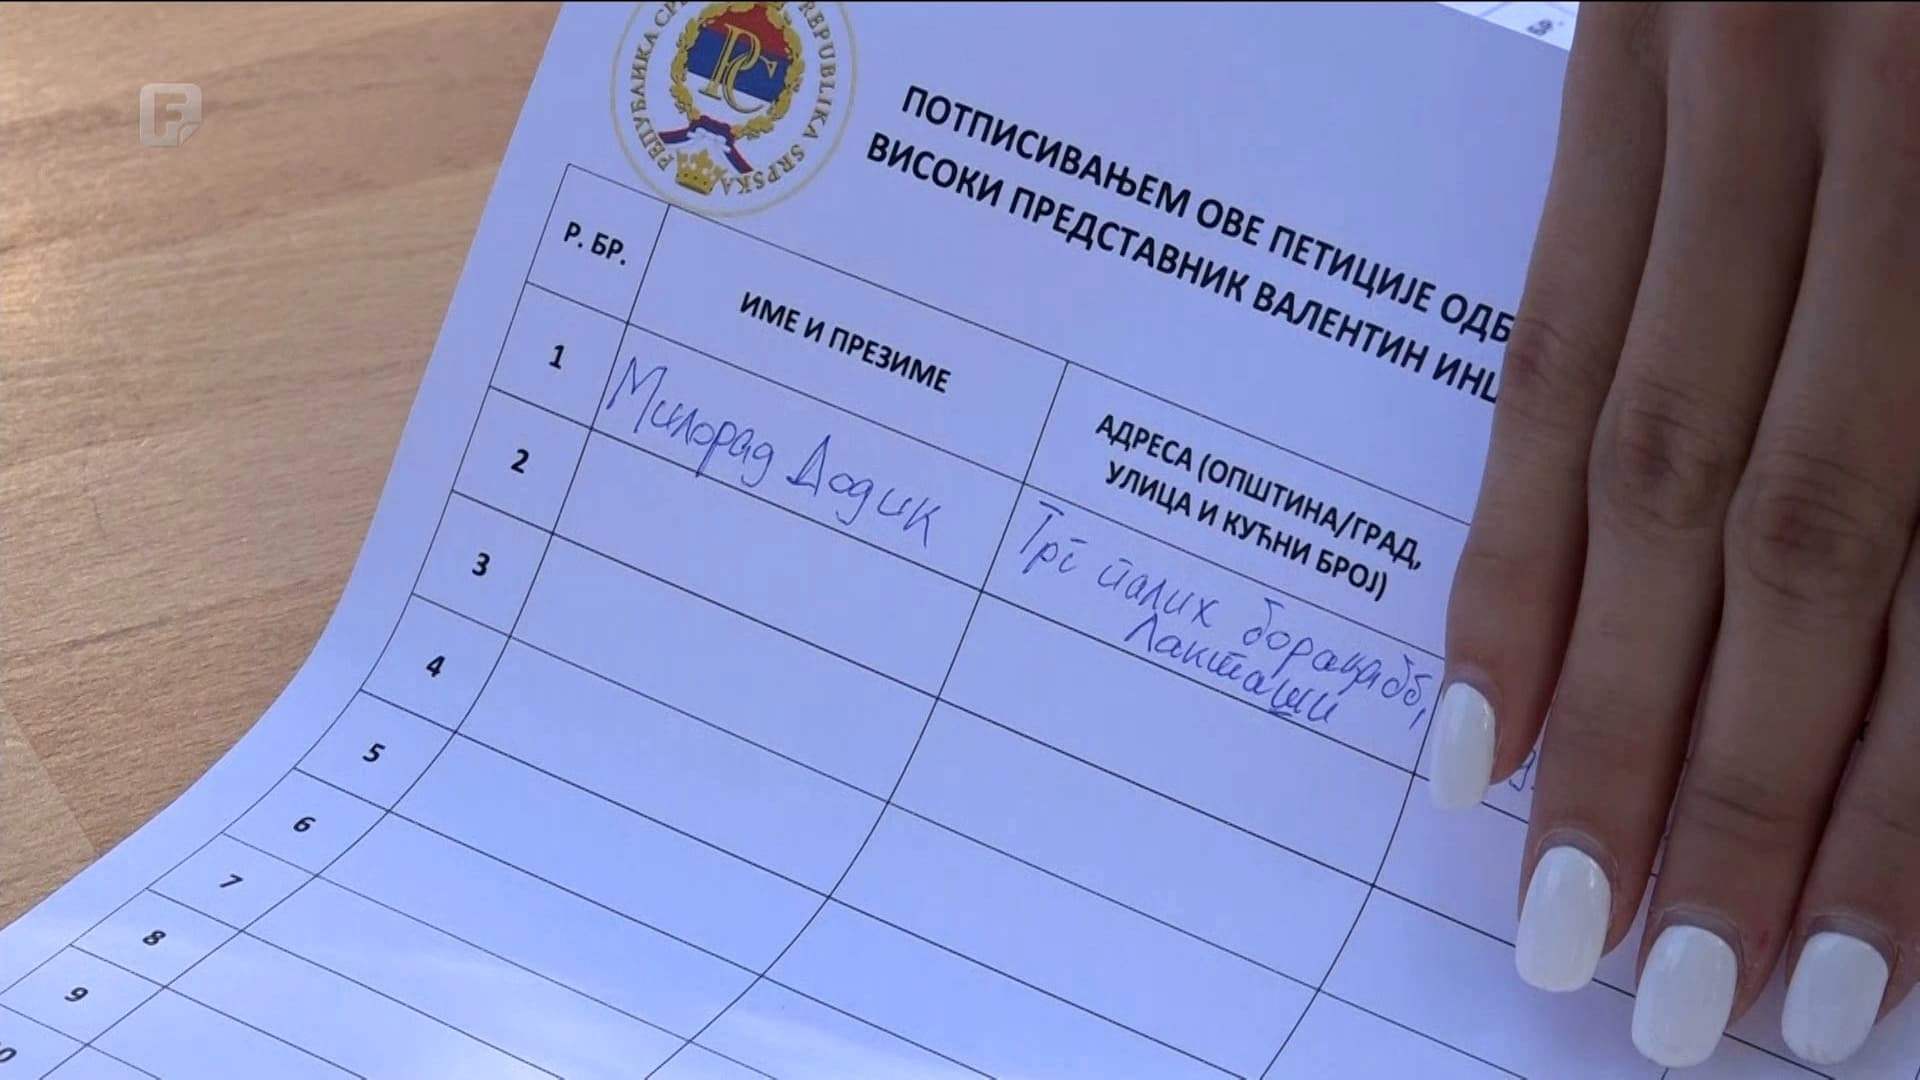 F
РЕПУБЛИКА СР REPUBLIKA SRPSKA
РС
ПОТПИСИВАЊЕМ ОВЕ ПЕТИЦИЈЕ ОДБ
ВИСОКИ ПРЕДСТАВНИК ВАЛЕНТИН ИНЦ
Р. БР.
ИМЕ И ПРЕЗИМЕ
АДРЕСА (ОПШТИНА/ГРАД,
УЛИЦА И КУЋНИ БРОЈ)
1
Милорад Додик
Трг палих бораца
Лакташи
2
3
4
5
6
7
8
9